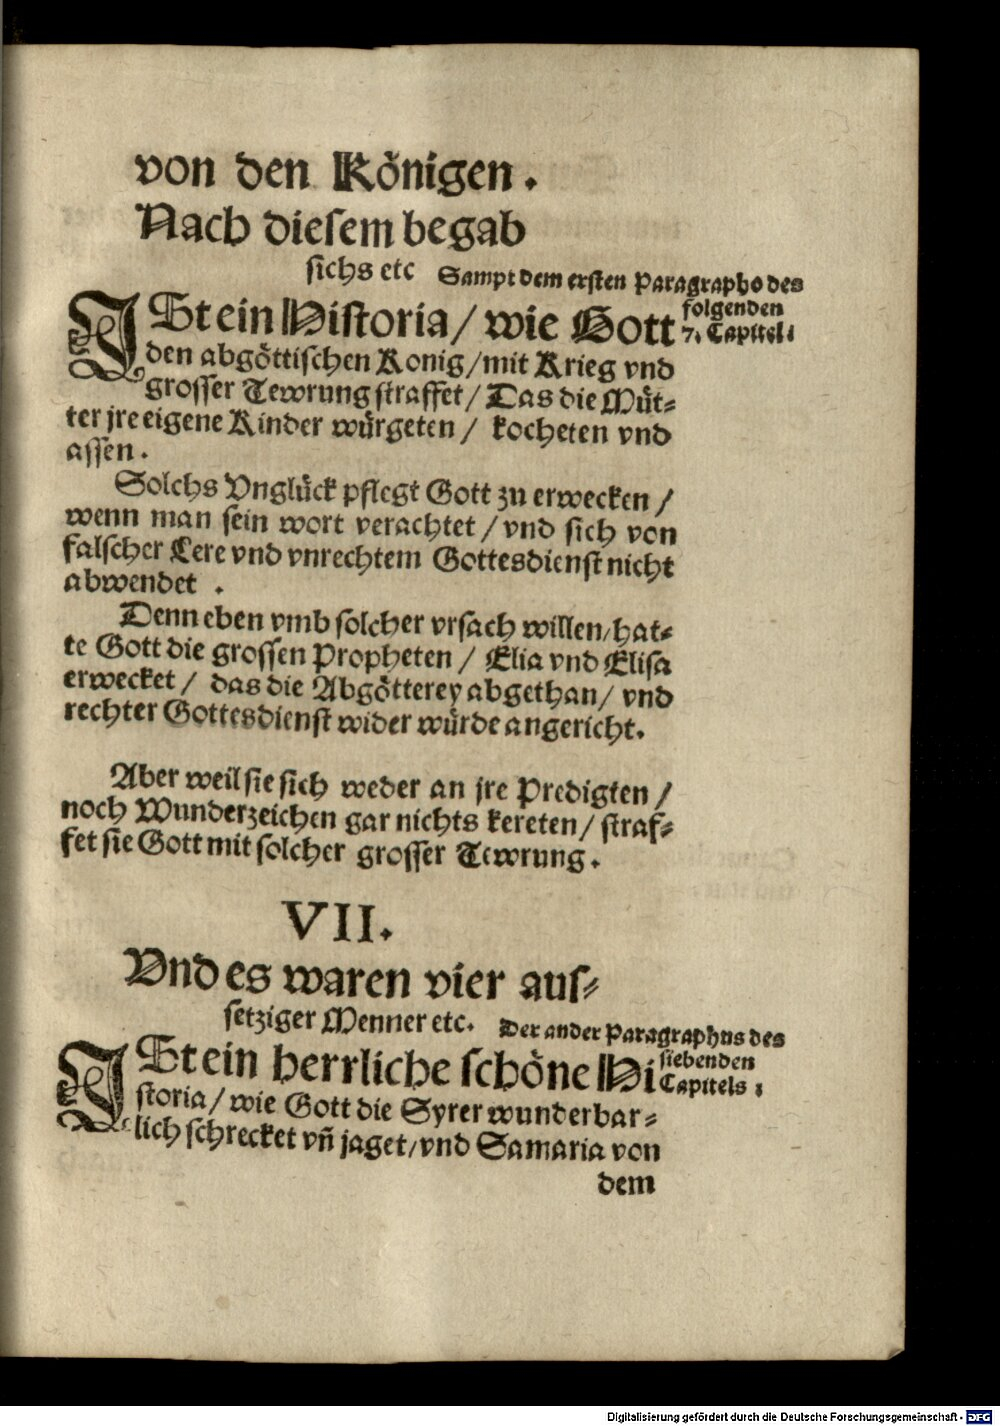 von den Königen.
Nach diesem begab
sichs etc Sampt dem ersten Paragrapho des
folgenden
7. Capitel.
ISt ein Historia / wie Gott
den abgöttischen Konig / mit Krieg vnd
grosser Tewrung straffet / Das die Müt⸗
ter jre eigene Kinder würgeten / kocheten vnd
assen.
Solchs Vnglück pflegt Gott zu erwecken /
wenn man sein wort verachtet / vnd sich von
falscher Lere vnd vnrechtem Gottesdienst nicht
abwendet.
Denn eben vmb solcher vrsach willen / hat⸗
te Gott die grossen Propheten / Elia vnd Elisa
erwecket / das die Abgötterey abgethan / vnd
rechter Gottesdienst wider würde angericht.
Aber weil sie sich weder an jre Predigten /
noch Wunderzeichen gar nichts kereten / straf⸗
fet sie Gott mit solcher grosser Tewrung.
VII.
Vnd es waren vier aus⸗
setziger Menner etc. Der ander Paragraphus des
siebenden
Capitels.
ISt ein herrliche schöne Hi
storia / wie Gott die Syrer wunderbar⸗
lich schrecket vñ jaget / vnd Samaria von
dem
Digitalisierung gefördert durch die Deutsche Forschungsgemeinschaft - DFG